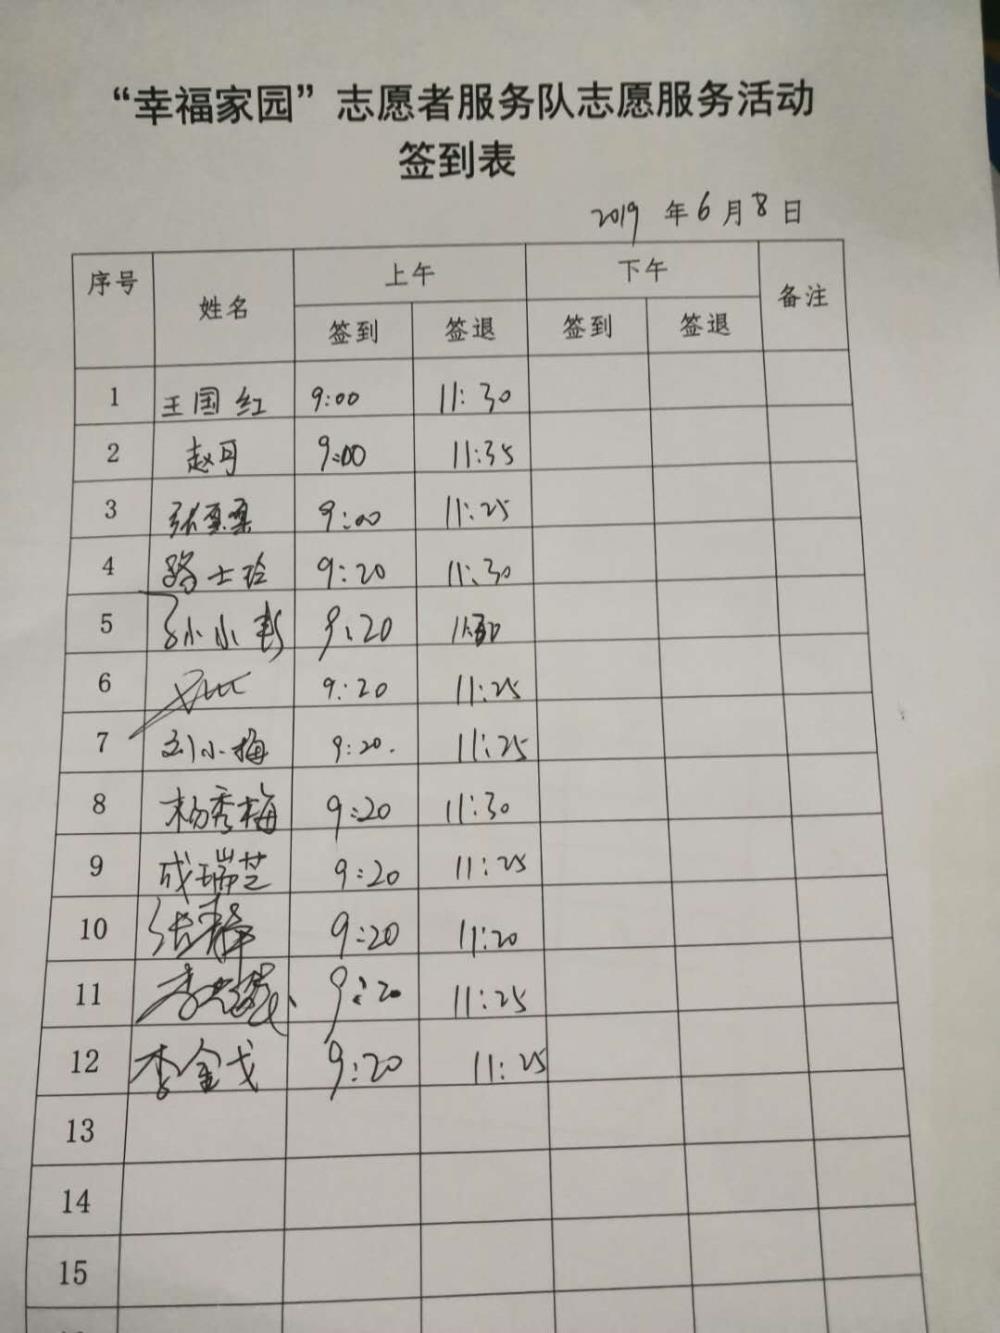 “幸福家园”志愿者服务队志愿服务活动
签到表
2019 年 6 月 8 日
序号 姓名 上午 下午 备注
签到 签退 签到 签退
1 王国红 9:00 11:30
2 赵丹 9:00 11:35
3 张桑桑 9:00 11:25
4 路士玲 9:20 11:30
5 孙小 9:20
6 9:20 11:25
7 刘小梅 9:20. 11:25
8 杨秀梅 9:20 11:30
9 成瑞芝 9:20 11:25
10 张 9:20 11:20
11 李 9:20 11:25
12 李金戈 9:20 11:25
13
14
15